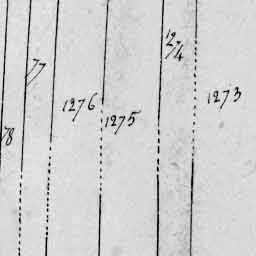 1274
77
1273
1276
1275
78